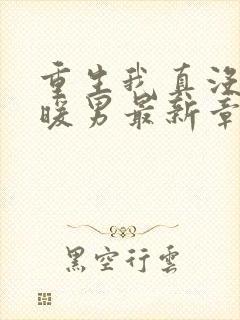 重生我真没
暖男最新章
黑空行雲